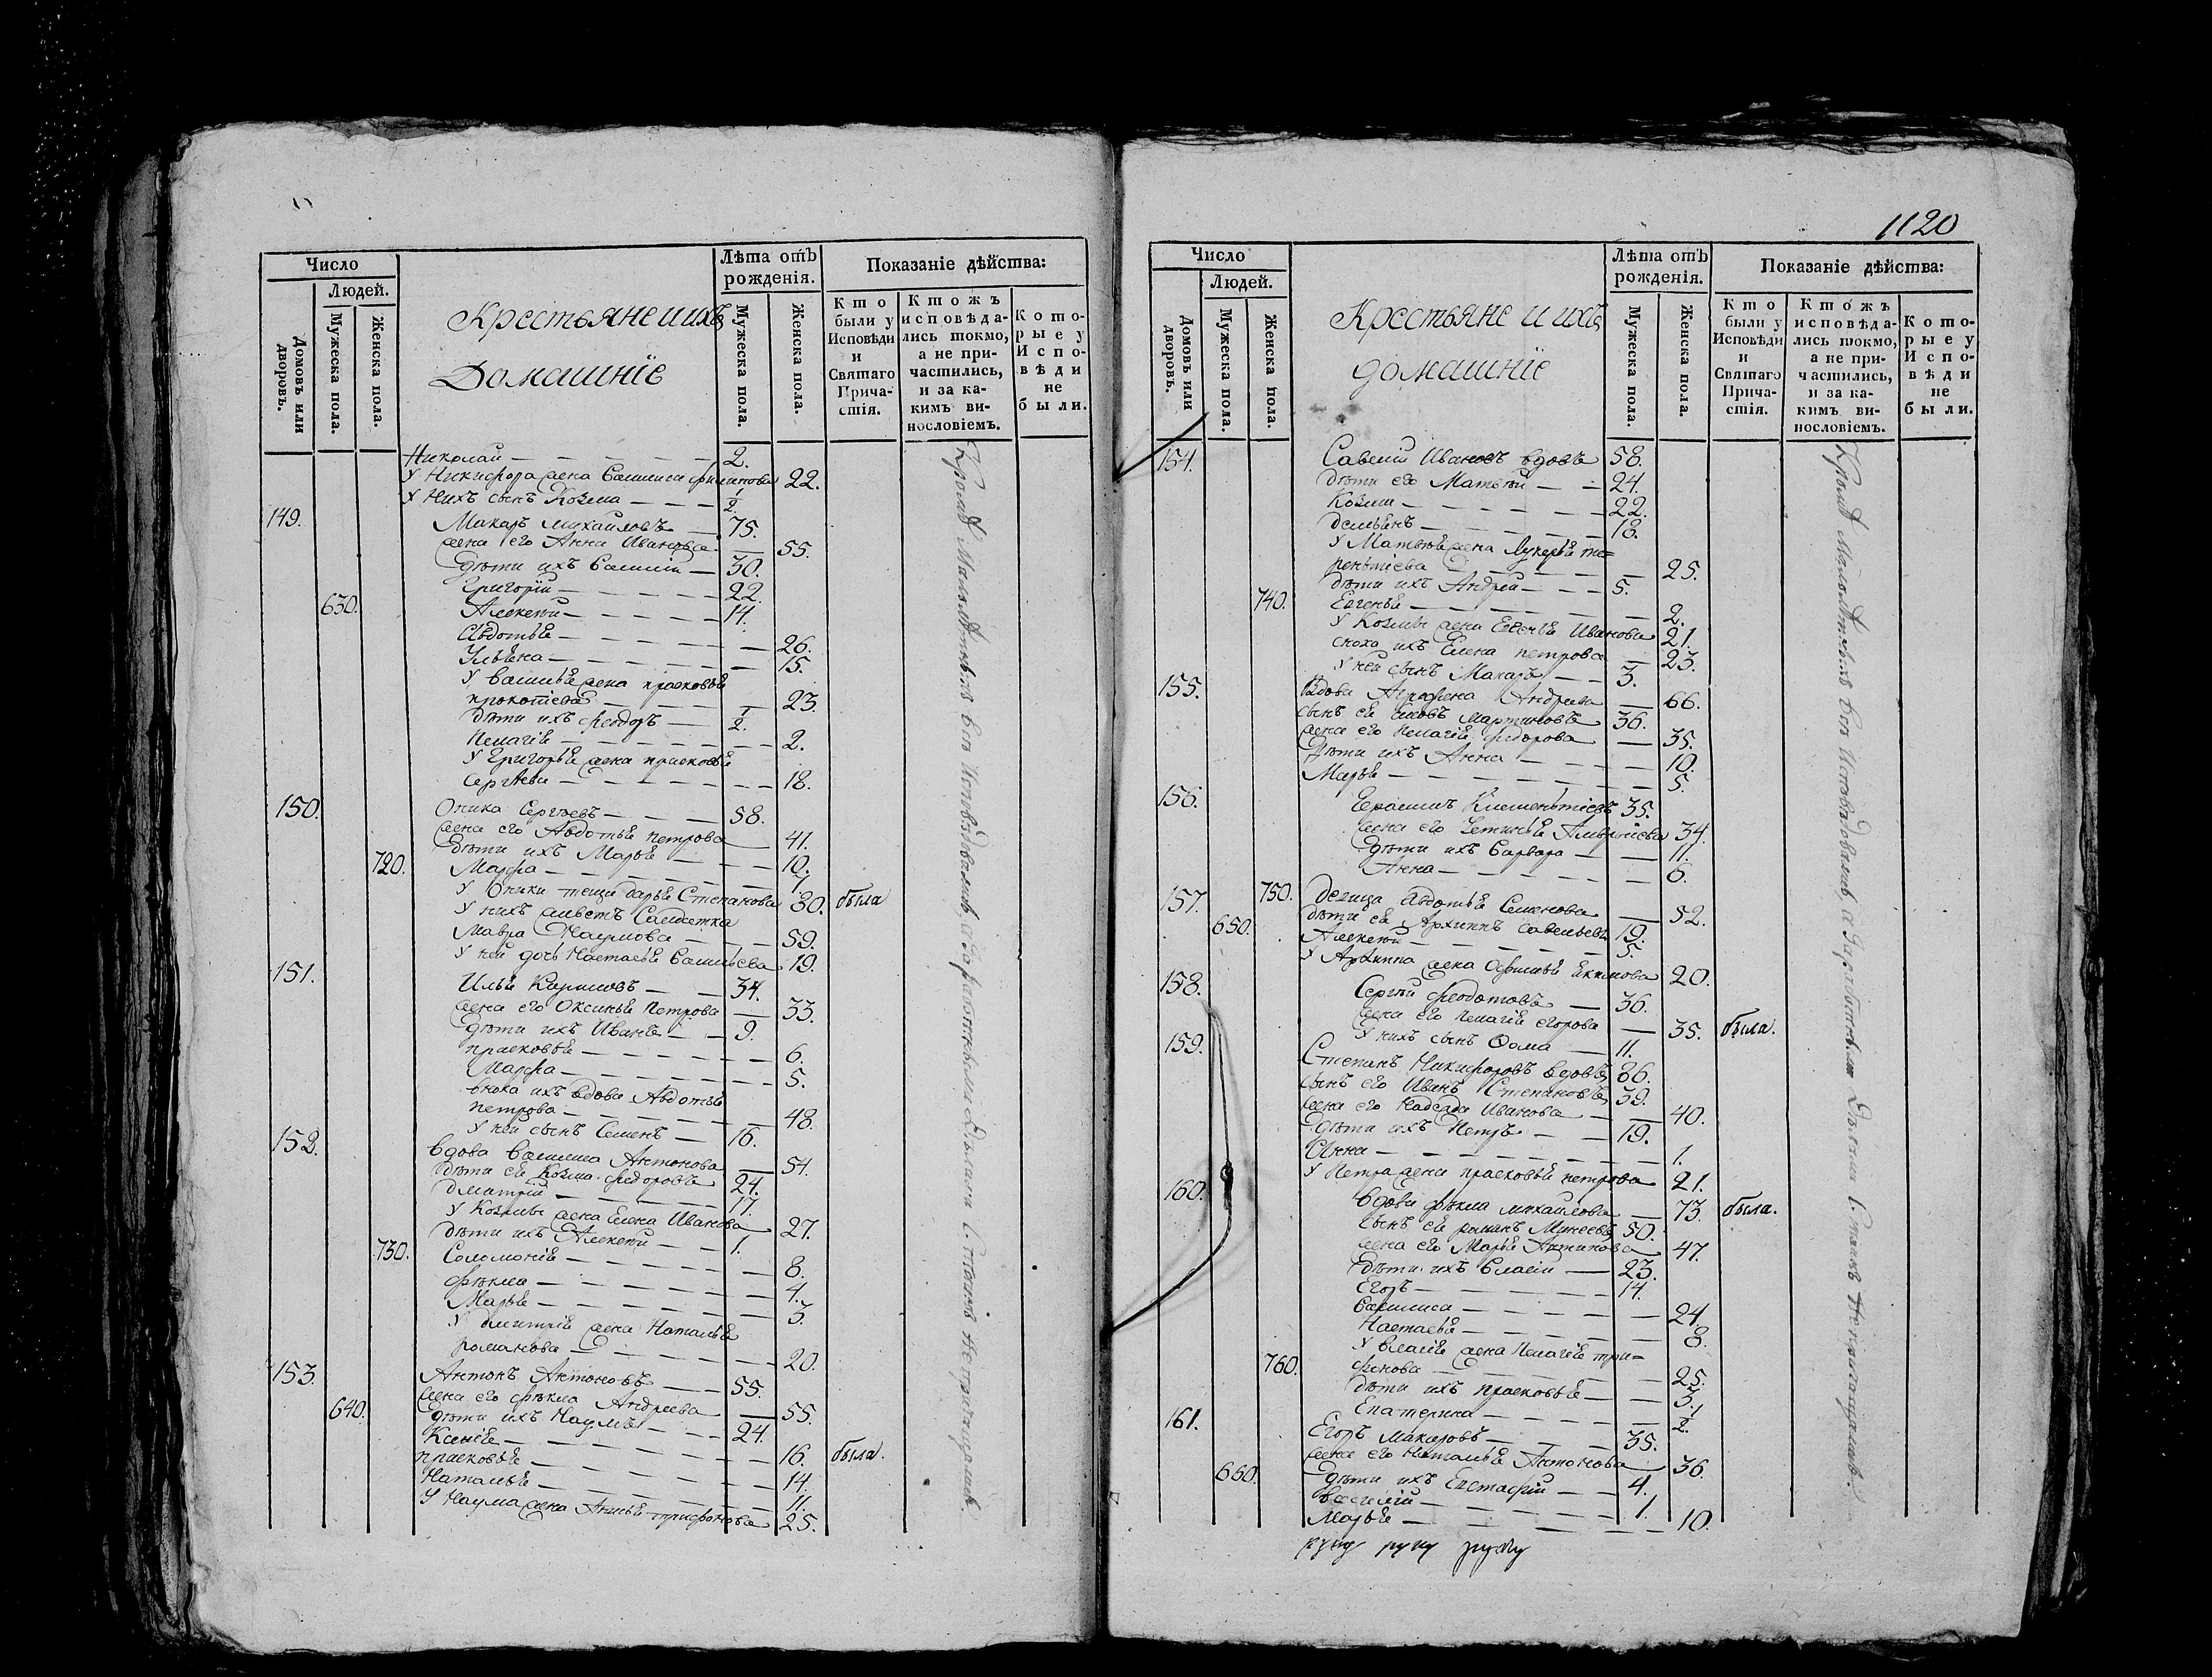 Число
Людей.
Домовъ или дворовъ.
Мужеска пола.
Женска пола.
Крестьяне и ихъ
Домашнїе
Лѣта отъ рожденїя.
Мужеска пола.
Женска пола.
Показанїе дѣйства:
Кто были у Исповѣди и Святаго Причастїя.
Ктожъ исповѣдались токмо, а не причастились, и за какимъ винословїемъ.
Которые у Исповѣди не были.
Николай 2.
У Никифора жена Василиса Филипова 22.
У нихъ сынъ Козма ½
149. Макаръ Михайловъ 75.
жена его Анна Иванова 55.
Дѣти ихъ Василий 30.
Григорій 22.
630. Алексѣй 14.
Авдотья 26.
Ульяна 15.
У Василья жена Прасковья
Прокопїева 23.
Дѣти ихъ Феодоръ ½.
Пелагїя 2.
У Григорья жена Прасковья
Сергѣева 18.
150. Оника Сергѣевъ 58.
жена его Авдотья Петрова 41.
720. Дѣти ихъ Марья 10.
Марфа 7.
У Оники теща Дарья Степанова 80. была
У нихъ живетъ Салдатка
Мавра Наумова 59.
У ней дочь Настасья Васильева 19.
151. Илья Карповъ 34.
жена его Оксинья Петрова 33.
Дѣти ихъ Иванъ 9.
Прасковья 6.
Марфа 5.
сноха ихъ вдова Авдотья
Петрова 48.
У ней сынъ Семенъ 16.
152. Вдова Василиса Антонова 54.
Дѣти ея Козма Федоровъ 24.
Дмитрій 17.
У Козмы жена Елена Иванова 27.
Дѣти ихъ Алексѣй 1.
730. Соломонїя 8.
Фекла 4.
Марья 3.
У Дмитрія жена Наталья
Романова 20.
153. Антонъ Антоновъ 55.
жена его Фекла Андреева 55.
640. Дѣти ихъ Наумъ 24.
Ксенія 16. была.
Прасковья 14.
Наталья 11.
У Наума жена Анисья Трифонова 25.
Кромѣ Малолѣтныхъ вси Исповѣдовались, а за работными Долгами С. таинъ не причащались.
1120
Число
Людей.
Домовъ или дворовъ.
Мужеска пола.
Женска пола.
Крестьяне и ихъ
домашнїе
Лѣта отъ рожденїя.
Мужеска пола.
Женска пола.
Показанїе дѣйства:
Кто были у Исповѣди и Святаго Причастїя.
Ктожъ исповѣдались токмо, а не причастились, и за какимъ винословїемъ.
Которые у Исповѣди не были.
154. Савелій Ивановъ вдовъ 58.
Дѣти его Матвѣй 24.
Козма 22.
Демьянъ 18.
У Матвѣя жена Лукерья Те=
рентїева 25.
Дѣти ихъ Андрей 5.
740. Евгенья 2.
У Козмы жена Евгенїя Иванова 21.
сноха ихъ Елена Петрова 23.
У ней сынъ Макаръ 3.
155. Вдова Агрофена Андреева 66.
сынъ ея Яковъ Мартиновъ 36.
жена его Пелагїя Федорова 35.
Дѣти ихъ Анна 10.
Марья 5.
156. Герасимъ Климентїевъ 35.
жена его Устинья 34.
Дѣти ихъ Варвара 11.
Анна 6.
157. 750. Девица Авдотья Семенова 52.
650. Дѣти ея Архиппъ Савельевъ 19.
Алексѣй 5.
У Архиппа жена Офимья Екимова 20.
158. Сергѣй Феодотовъ 36.
жена его Пелагїя Егорова 35. была.
У нихъ сынъ Фома 11.
159. Степанъ Никифоровъ вдовъ 86.
сынъ его Иванъ Степановъ 39.
жена его Надежда Иванова 40.
Дѣти ихъ Петръ 19.
Анна 1.
У Петра жена Прасковья Петрова 21.
160. Вдова Фекла Михайлова 73. была.
сынъ ея Романъ Минеевъ 50.
жена его Марья Антипова 47.
Дѣти ихъ Власій 23.
Егоръ 14.
Василиса 24.
Настасья 8.
У Власія жена Пелагїя Три=
760. фонова 25.
Дѣти ихъ Прасковья 3.
Екатерина ½.
161. Егоръ Макаровъ 35.
жена его Наталья Антонова 36.
660. Дѣти ихъ Евстафій 4.
Василій 1.
Марья 10.
Кромѣ Малолѣтныхъ вси Исповѣдовались, а за работными Долгами С. таинъ не причащались.
руку руку руку